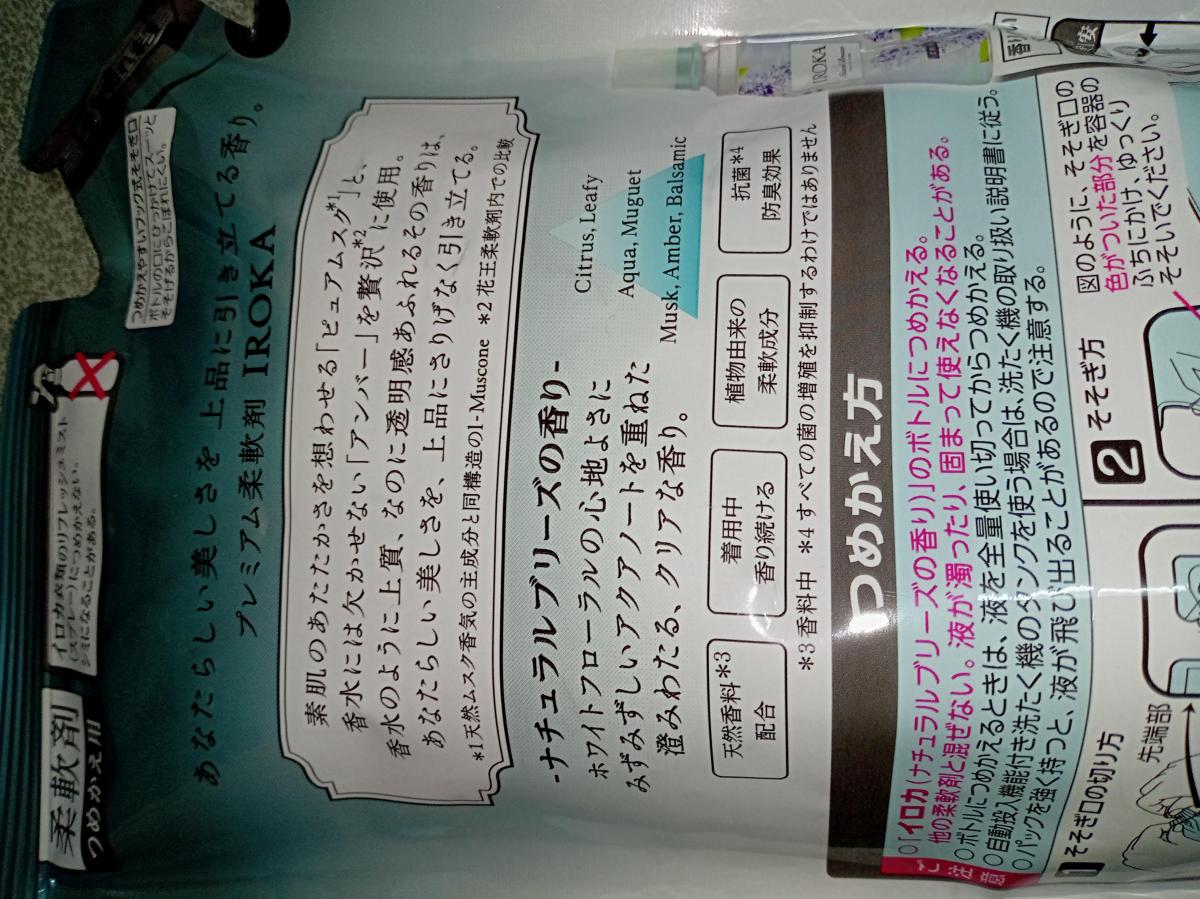 柔軟剤
つめかえ用
イロカ衣類のリフレッシュミスト
(スプレー)につめかえない。
シミになることがある。
つめかえやすいフック式そそぎ口
ボトルの口にひっかけてスーッと
そそげるからこぼれにくい。
あなたらしい美しさを 上品に引き立てる香り。
プレミアム柔軟剤 IROKA
素肌のあたたかさを想わせる「ピュアムスク*1」と、
香水には欠かせない「アンバー」を贅沢*2に使用。
香水のように上質、なのに透明感あふれるその香りは、
あなたらしい美しさを、上品にさりげなく引き立てる。
*1天然ムスク香気の主成分と同構造のl-Muscone *2 花王柔軟剤内での比較
-ナチュラルブリーズの香り-
ホワイトフローラルの心地よさに
みずみずしいアクアノートを重ねた
澄みわたる、クリアな香り。
Citrus, Leafy
Aqua, Muguet
Musk, Amber, Balsamic
天然香料*3
配合
着用中
香り続ける
植物由来の
柔軟成分
抗菌*4
防臭効果
*3 香料中 *4 すべての菌の増殖を抑制するわけではありません
IROKA
香り
つめかえ方
ご注意
○「イロカ(ナチュラルブリーズの香り)」のボトルにつめかえる。
他の柔軟剤と混ぜない。液が濁ったり、固まって使えなくなることがある。
○ボトルにつめかえるときは、液を全量使い切ってからつめかえる。
○自動投入機能付き洗たく機のタンクを使う場合は、洗たく機の取り扱い説明書に従う。
○パックを強く持つと、液が飛び出ることがあるので注意する。
1 そそぎ口の切り方
先端部
2 そそぎ方
図のように、そそぎ口の
色がついた部分を容器の
ふちにかけ、ゆっくり
そそいでください。